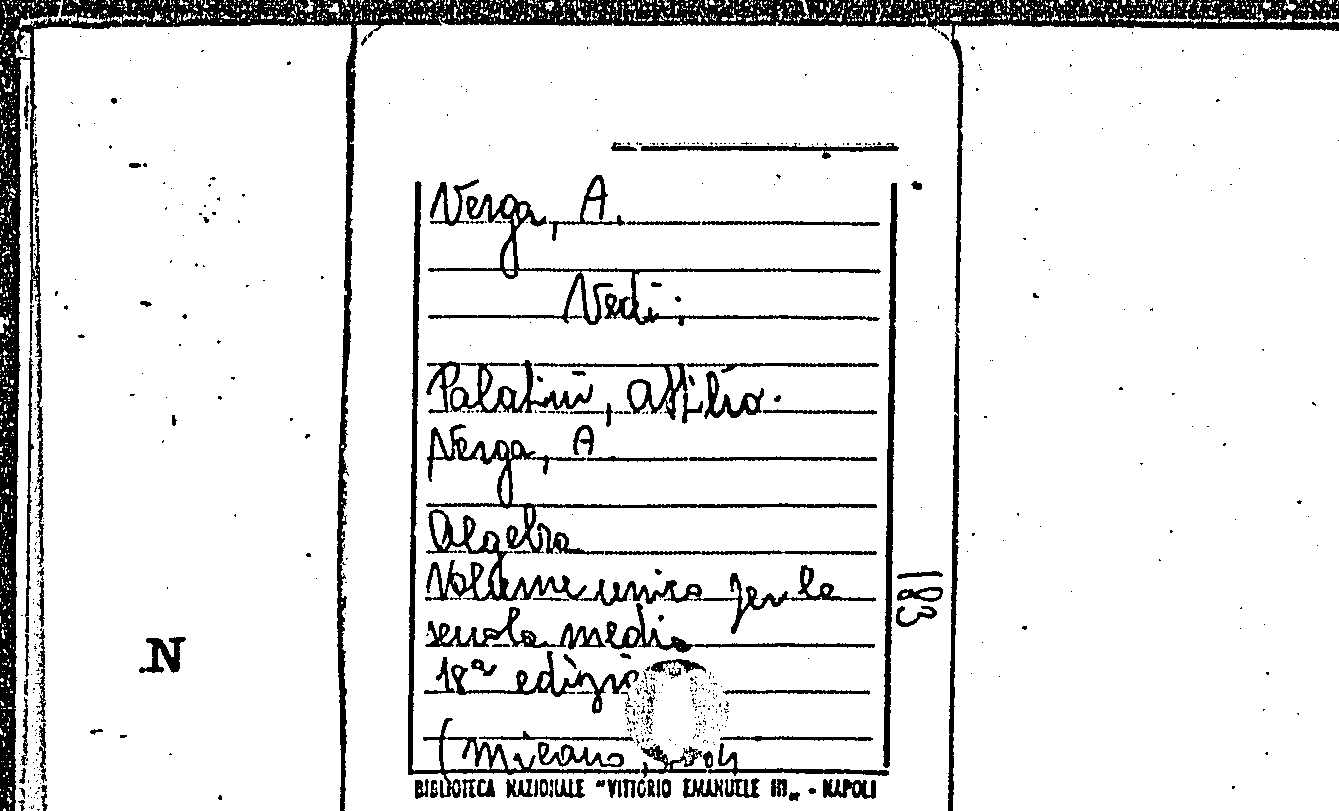 Verga, A.
Vedi:
Palatini, Attilio.
Verga, A
Algebra
Volume unico per la
scuola media
18ª edizio
(Milano,
183
N
BIBLIOTECA NAZIONALE "VITTORIO EMANUELE III„ - NAPOLI